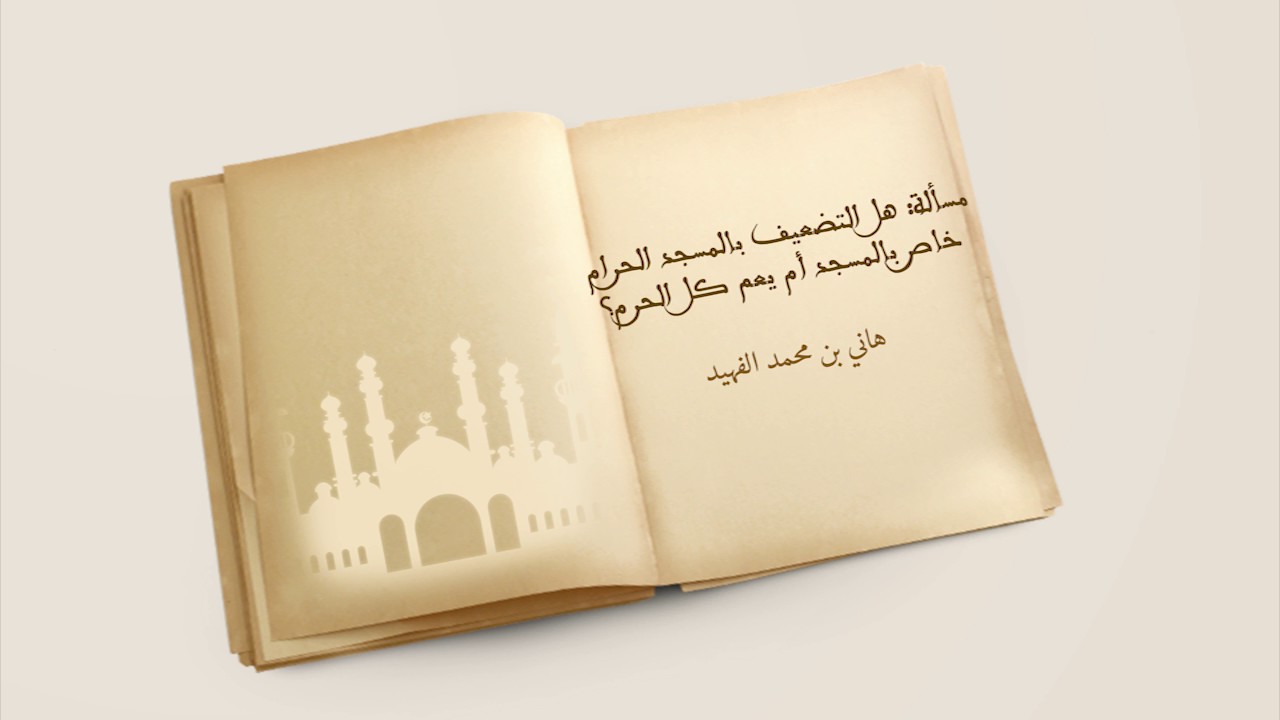 مسألة: هل التضعيف بالمسجد الحرام
خاص بالمسجد أم يعم كل الحرم؟
هاني بن محمد الفهيد